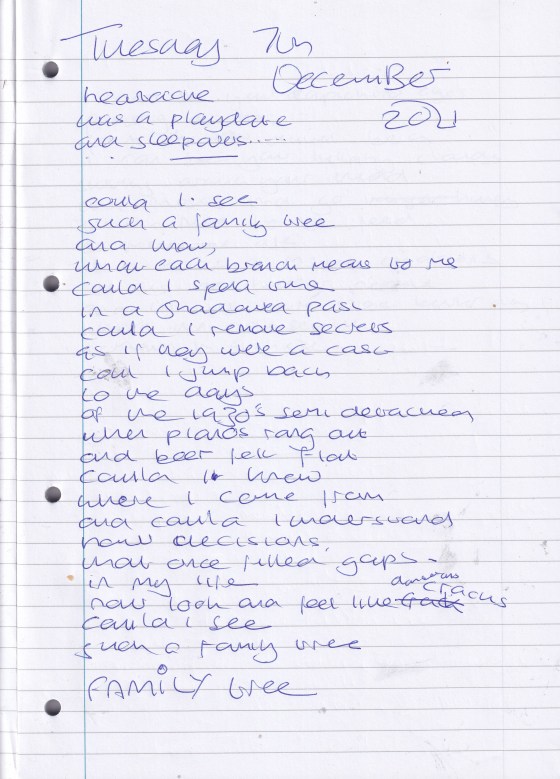 Tuesday 7th
December
2021
headache
was a playdate
and sleepovers......
could I see
such a family tree
and know,
what each branch means to me
could I spend time
in a shadowed past
could I remove secrets
as if they were a cast
could I jump back
to the days
of the 1930's semi detached
when pianos rang out
and beer fell flat
could I know
where I came from
and could I understand
how decisions,
that once filled gaps
in my life
now look and feel like cracks
could I see
such a family tree
FAMILY tree